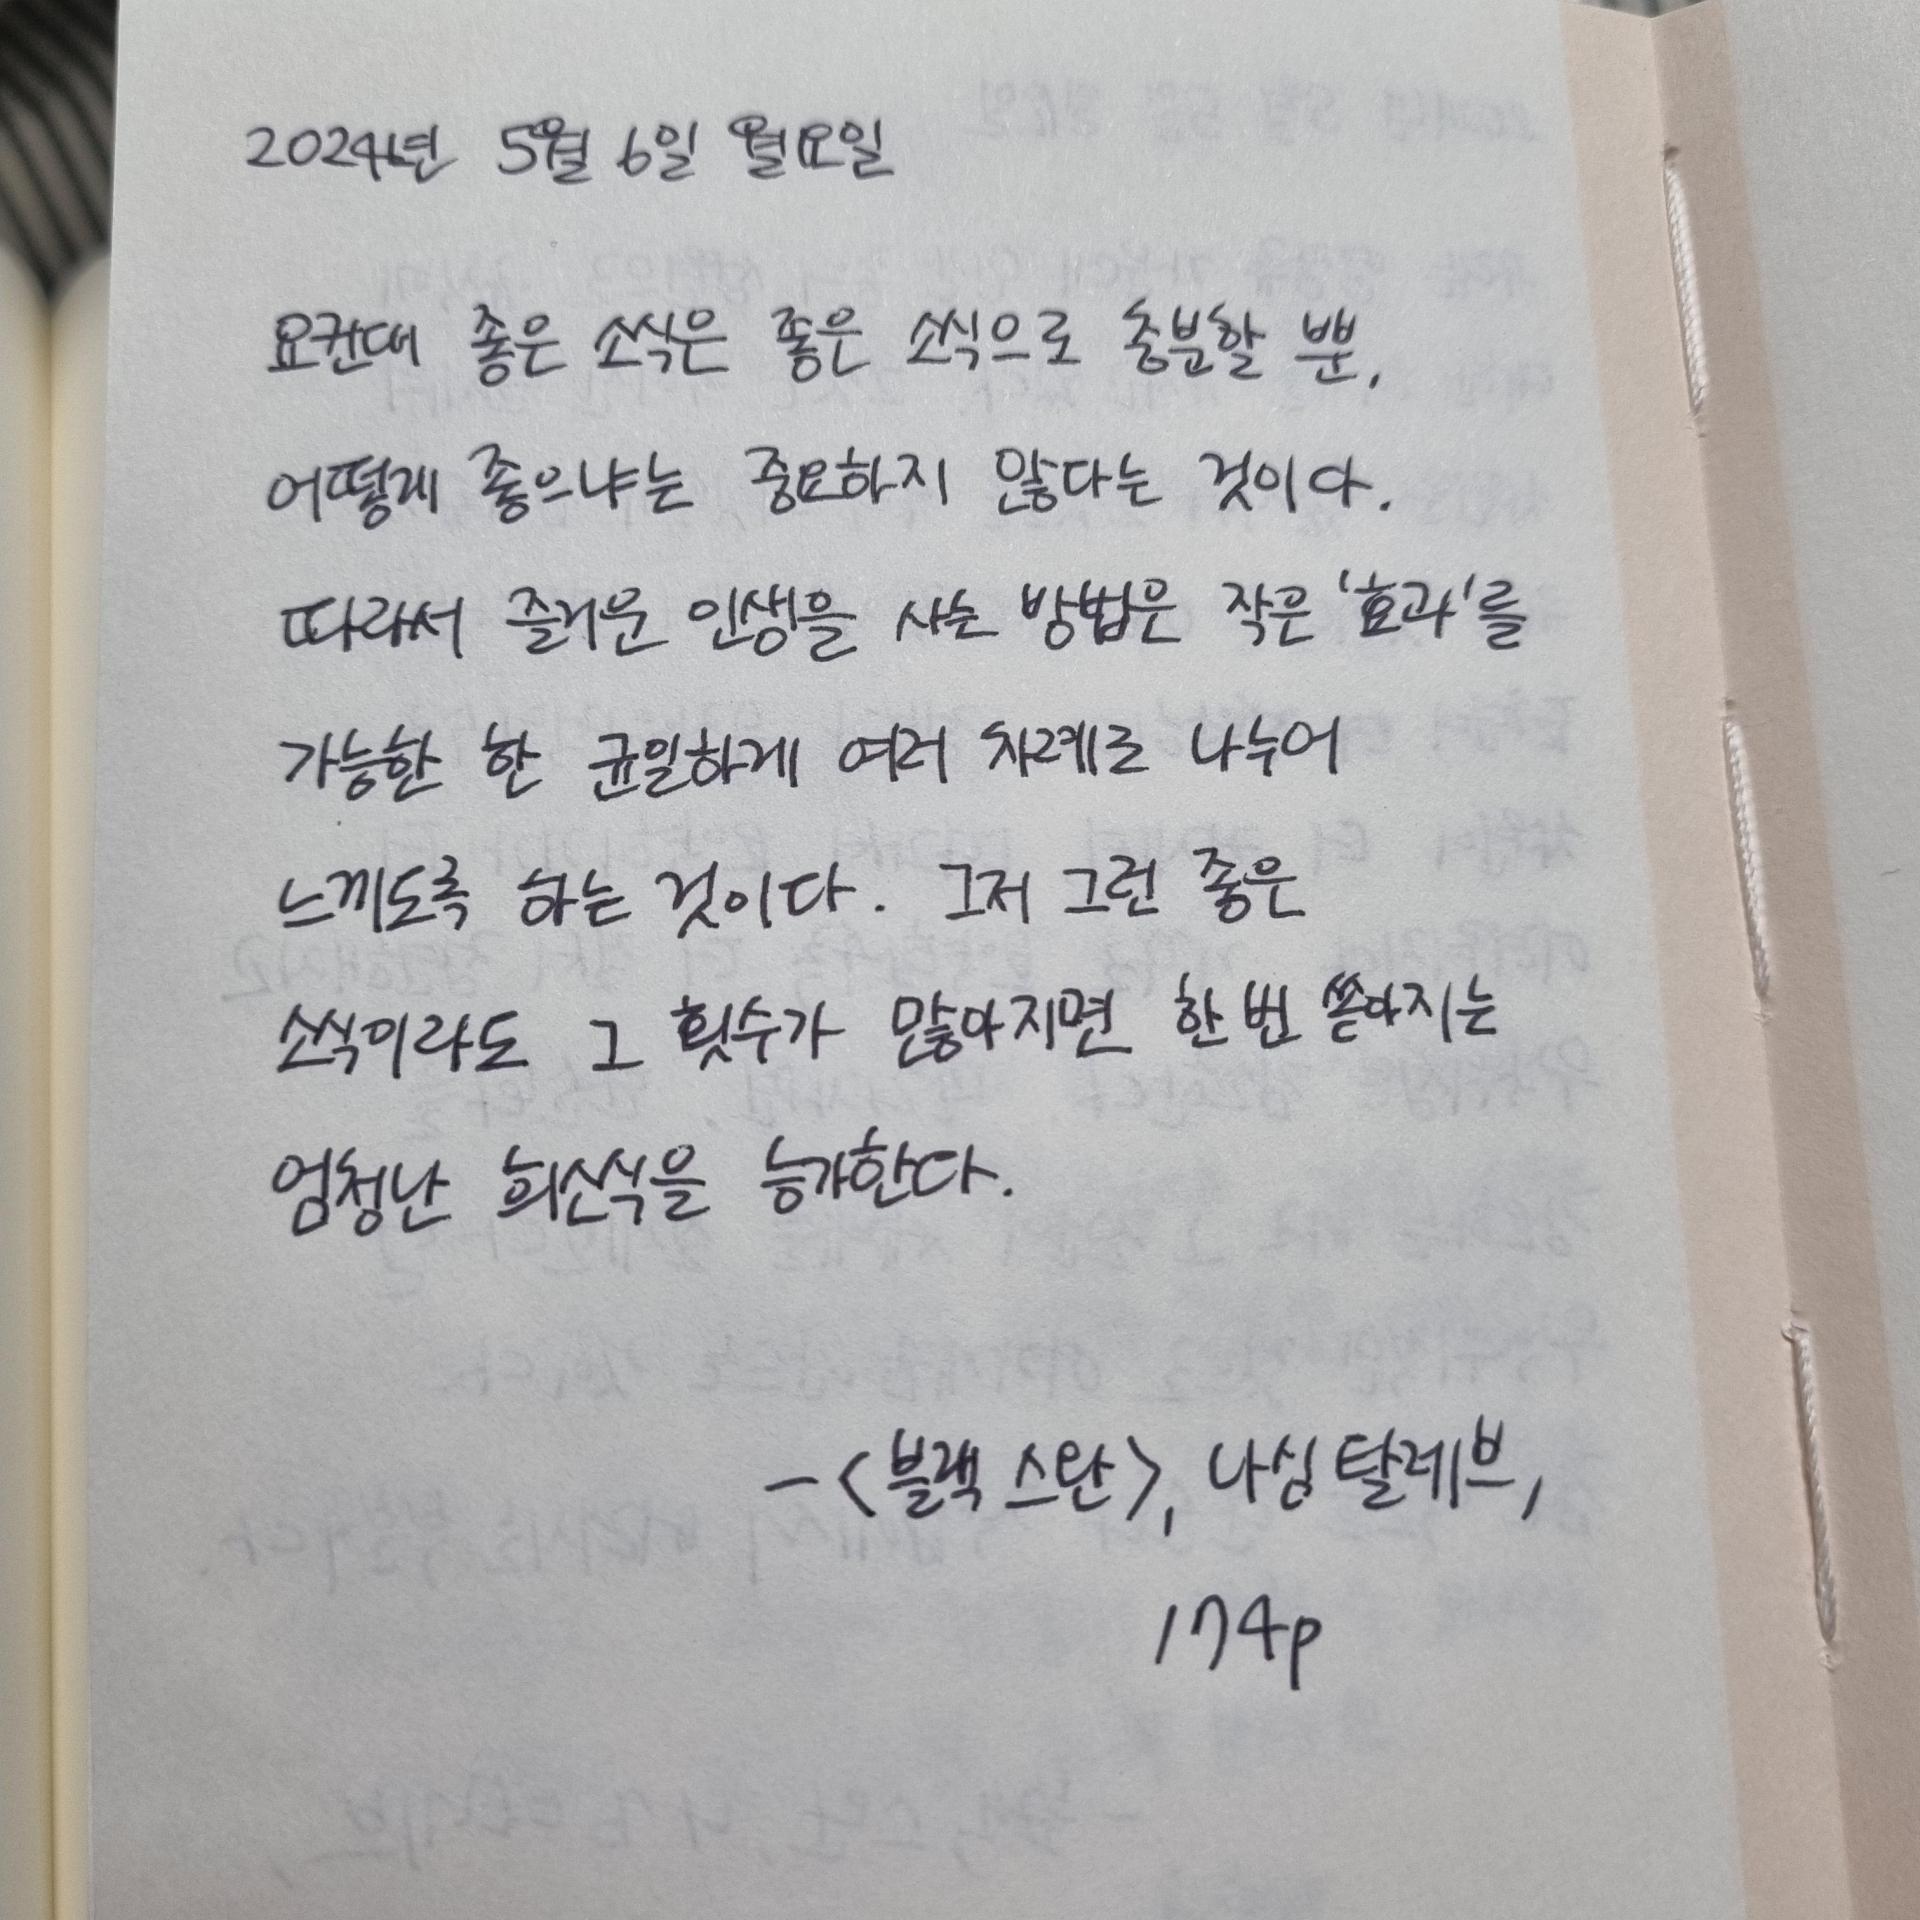 2024년 5월 6일 월요일
요컨대 좋은 소식은 좋은 소식으로 충분할 뿐,
어떻게 좋으냐는 중요하지 않다는 것이다.
따라서 즐거운 인생을 사는 방법은 작은 '효과'를
가능한 한 균일하게 여러 차례로 나누어
느끼도록 하는 것이다. 그저 그런 좋은
소식이라도 그 횟수가 많아지면 한 번 쏟아지는
엄청난 희소식을 능가한다.
-<블랙 스완>, 나심 탈레브,
174p